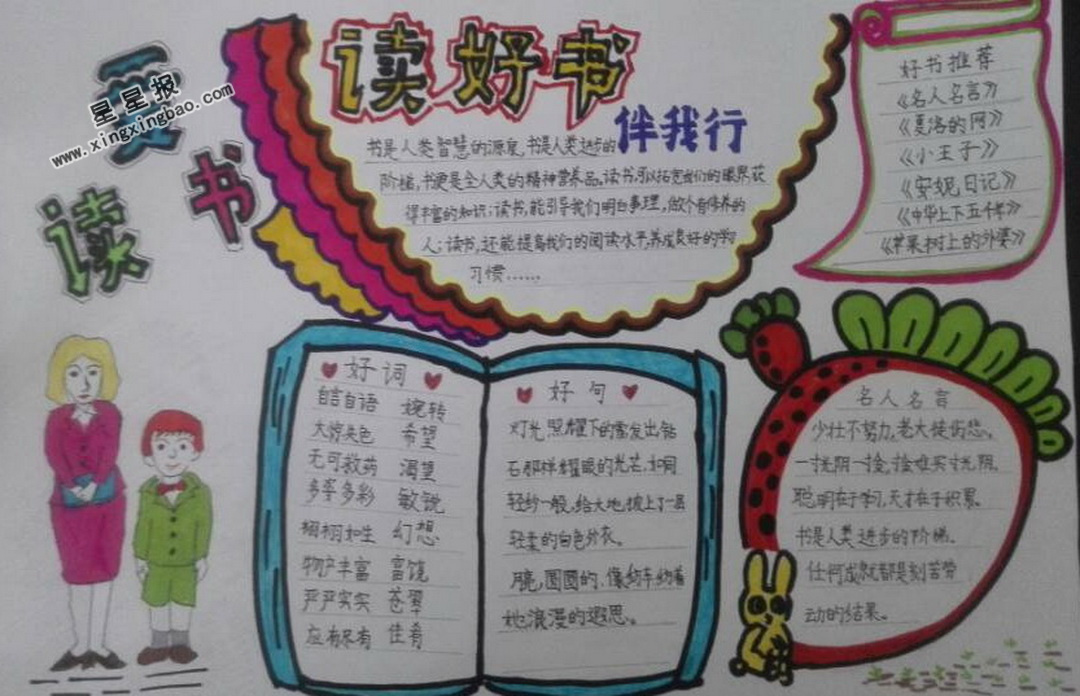 星星报
www.xingxingbao.com
读书
读好书
伴我行
书是人类智慧的源泉,书是人类进步的
阶梯,书更是全人类的精神营养品。读书,可以拓宽我们的眼界,获
得丰富的知识;读书,能引导我们明白事理,做个有修养的
人;读书,还能提高我们的阅读水平,养成良好的学习
习惯……
好书推荐
《名人名言》
《夏洛的网》
《小王子》
《安妮日记》
《中华上下五千年》
《苹果树上的外婆》
好词
自言自语 婉转
大惊失色 希望
无可救药 渴望
多姿多彩 敏锐
栩栩如生 幻想
物产丰富 富饶
严严实实 苍翠
应有尽有 佳肴
好句
灯光照耀下的雪发出钻
石那样耀眼的光芒,如同
轻纱一般,给大地披上了一层
轻柔的白色外衣。
她浪漫的遐思。
名人名言
少壮不努力,老大徒伤悲。
一寸光阴一寸金,寸金难买寸光阴。
聪明在于学习,天才在于积累。
书是人类进步的阶梯。
任何成就都是刻苦劳
动的结果。